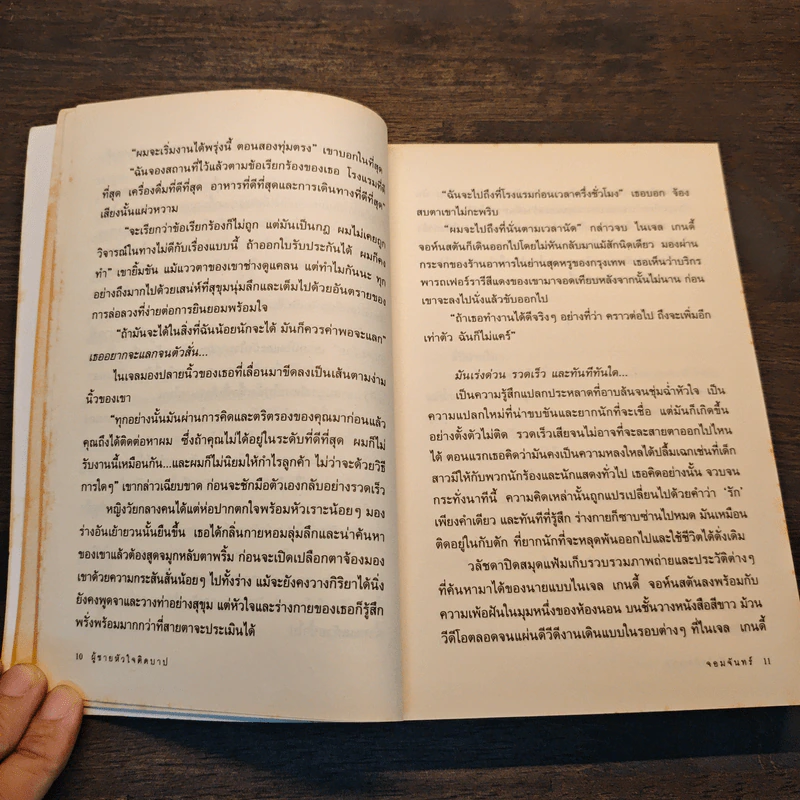 “ผมจะเริ่มงานได้พรุ่งนี้ ตอนสองทุ่มตรง” เขาบอกในที่สุด
“ฉันจองสถานที่ไว้แล้วตามข้อเรียกร้องของเธอ โรงแรมที่ดี
ที่สุด เครื่องดื่มที่ดีที่สุด อาหารที่ดีที่สุดและการเดินทางที่ดีที่สุด”
เสียงนั้นแผ่วหวาม
“จะเรียกว่าข้อเรียกร้องก็ไม่ถูก แต่มันเป็นกฎ ผมไม่เคยถูก
วิจารณ์ในทางไม่ดีกับเรื่องแบบนี้ ถ้าออกใบรับประกันได้ ผมก็คง
ทำ” เขายิ้มขัน แม้แววตาของเขาช่างดูแคลน แต่ทำไมกันนะ ทุก
อย่างถึงมากไปด้วยเสน่ห์ที่สุขุมนุ่มลึกและเต็มไปด้วยอันตรายของ
การล่อลวงที่ง่ายต่อการยินยอมพร้อมใจ
“ถ้ามันจะได้ในสิ่งที่ฉันน้อยนักจะได้ มันก็ควรค่าพอจะแลก”
เธออยากจะแลกจนตัวสั่น...
ไนเจลมองปลายนิ้วของเธอที่เลื่อนมาขีดลงเป็นเส้นตามง่าม
นิ้วของเขา
“ทุกอย่างนั้นมันผ่านการคิดและตริตรองของคุณมาก่อนแล้ว
คุณถึงได้ติดต่อหาผม ซึ่งถ้าคุณไม่ได้อยู่ในระดับที่ดีที่สุด ผมก็ไม่
รับงานนี้เหมือนกัน...และผมก็ไม่นิยมให้กำไรลูกค้า ไม่ว่าจะด้วยวิธี
การใดๆ” เขากล่าวเฉียบขาด ก่อนจะชักมือตัวเองกลับอย่างรวดเร็ว
หญิงวัยกลางคนได้แต่ห่อปากตกใจพร้อมหัวเราะน้อยๆ มอง
ร่างอันเย้ายวนนั้นยืนขึ้น เธอได้กลิ่นกายหอมลุ่มลึกและน่าค้นหา
ของเขาแล้วต้องสูดจมูกหลับตาพริ้ม ก่อนจะเปิดเปลือกตาจ้องมอง
เขาด้วยความกระสันสั่นน้อยๆ ไปทั้งร่าง แม้จะยังคงวางกิริยาได้นิ่ง
ยังคงพูดจาและวางท่าอย่างสุขุม แต่หัวใจและร่างกายของเธอก็รู้สึก
พรั่งพร้อมมากกว่าที่สายตาจะประเมินได้
10 ผู้ชายหัวใจติดบาป
“ฉันจะไปถึงที่โรงแรมก่อนเวลาครึ่งชั่วโมง” เธอบอก จ้อง
สบตาเขาไม่กะพริบ
“ผมจะไปถึงที่นั่นตามเวลานัด” กล่าวจบ ไนเจล เกนดี้
จอห์นสตันก็เดินออกไปโดยไม่หันกลับมาแม้สักนิดเดียว มองผ่าน
กระจกของร้านอาหารในย่านสุดหรูของกรุงเทพ เธอเห็นว่าบริกร
พารถเฟอร์รารีสีแดงของเขามาจอดเทียบหลังจากนั้นไม่นาน ก่อน
เขาจะลงไปนั่งแล้วขับออกไป
“ถ้าเธอทำงานได้ดีจริงๆ อย่างที่ว่า คราวต่อไป ถึงจะเพิ่มอีก
เท่าตัว ฉันก็ไม่แคร์”
มันเร่งด่วน รวดเร็ว และทันทีทันใด...
เป็นความรู้สึกแปลกประหลาดที่อาบล้นจนชุ่มฉ่ำหัวใจ เป็น
ความแปลกใหม่ที่น่าขบขันและยากนักที่จะเชื่อ แต่มันก็เกิดขึ้น
อย่างตั้งตัวไม่ติด รวดเร็วเสียจนไม่อาจที่จะละสายตาออกไปไหน
ได้ ตอนแรกเธอคิดว่ามันคงเป็นความหลงใหลได้ปลื้มเฉกเช่นที่เด็ก
สาวมีให้กับพวกนักร้องและนักแสดงทั่วไป เธอคิดอย่างนั้น จวบจน
กระทั่งนาทีนี้ ความคิดเหล่านั้นถูกแปรเปลี่ยนไปด้วยคำว่า ‘รัก’
เพียงคำเดียว และทันทีที่รู้สึก ร่างกายก็ซาบซ่านไปหมด มันเหมือน
ติดอยู่ในกับดัก ที่ยากนักที่จะหลุดพ้นออกไปและใช้ชีวิตได้ดั่งเดิม
วลัชดาปิดสมุดแฟ้มเก็บรวบรวมภาพถ่ายและประวัติต่างๆ
ที่ค้นหามาได้ของนายแบบไนเจล เกนดี้ จอห์นสตันลงพร้อมกับ
ความเพ้อฝันในมุมหนึ่งของห้องนอน บนชั้นวางหนังสือสีขาว ม้วน
วีดีโอตลอดจนแผ่นดีวีดีงานเดินแบบในรอบต่างๆ ที่ไนเจล เกนดี้
จอมจันทร์ 11